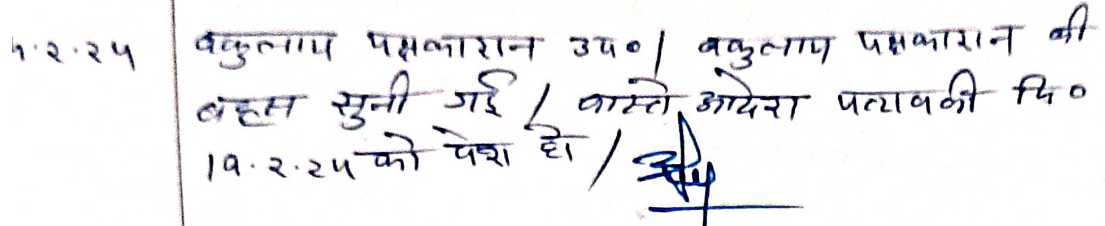 ५.२.२५ वकुलाय पक्षकारान उप०/ वकुलाय पक्षकारान की
बहस सुनी गई / वास्ते आदेश पत्रावली दि०
19.२.२५ को पेश हो /